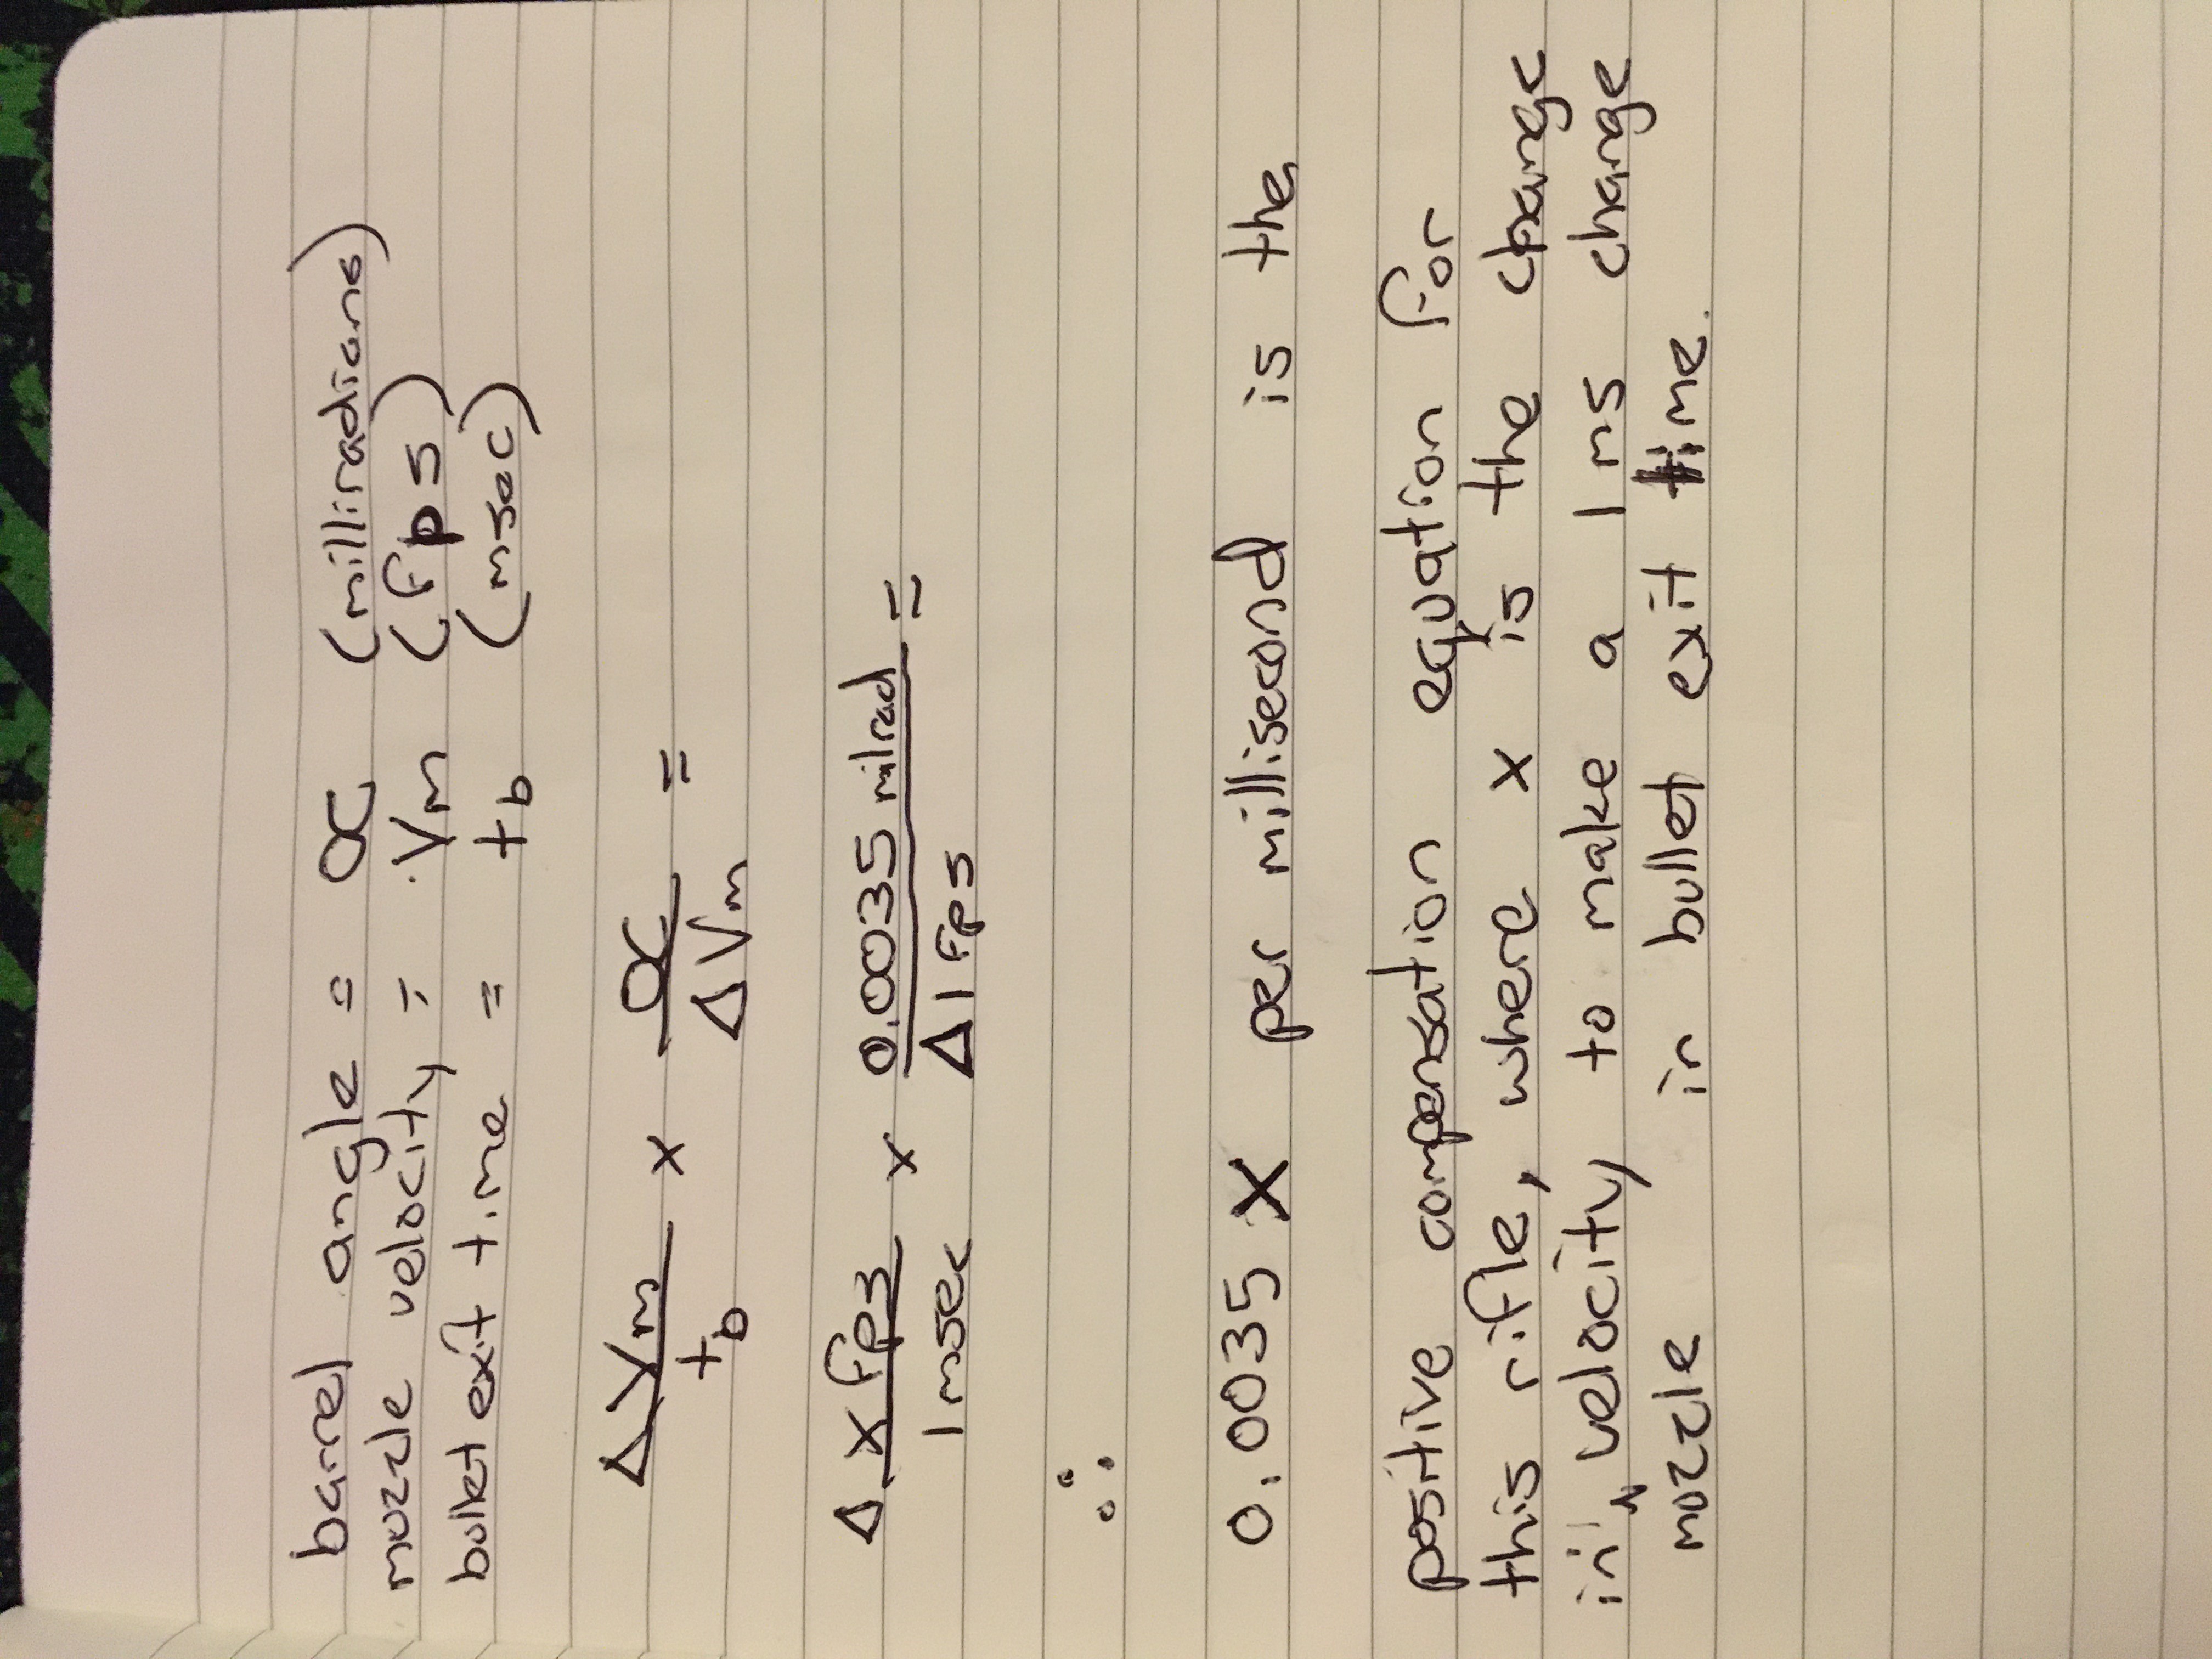 barrel angle = α (milliradians)
muzzle velocity = Vm (fps)
bullet exit time = tb (msec)
ΔVm / tb × α / ΔVm =
Δ X fps / 1 msec × 0.0035 milrad / Δ1 fps =
∴
0.0035 X per millisecond is the
positive compensation equation for
this rifle, where X is the change
in velocity to make a 1 ms change
muzzle in bullet exit time.